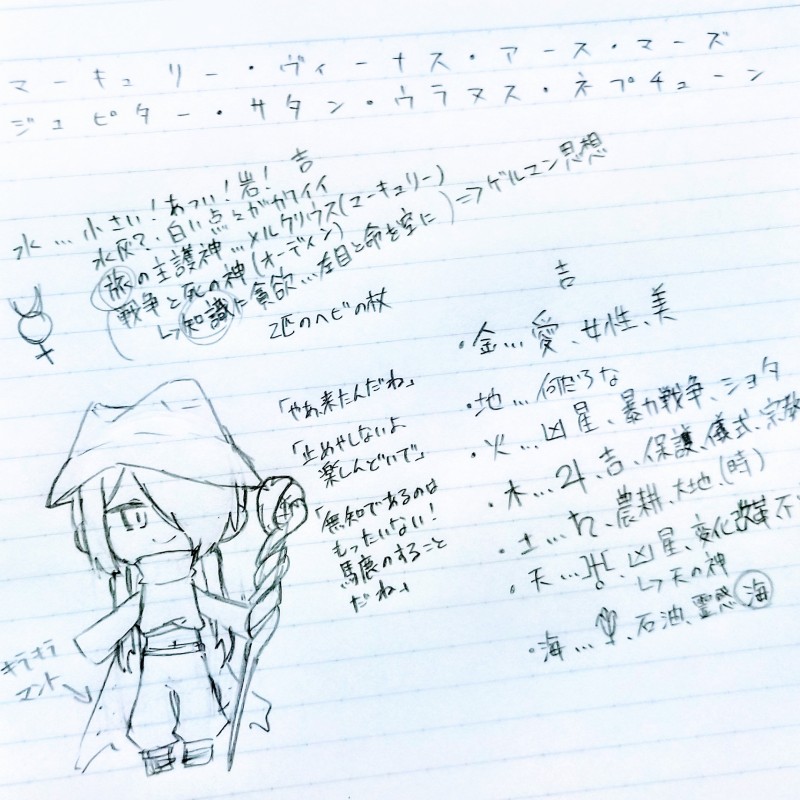 マーキュリー・ヴィーナス・アース・マーズ
ジュピター・サタン・ウラヌス・ネプチューン
吉
水…小さい！あつい！岩！
水灰？、白い点々がカワイイ
旅の主護神…メルクリウス(マーキュリー)
戦争と死の神(オーディン)
↳知識に貪欲…左目と命を空に
⇒ゲルマン思想
2匹のヘビの杖
☿
「やあ、来たんだね」
「止めやしないよ
楽しんどいで」
「無知であるのは
もったいない！
馬鹿のすること
だね」
キラキラ
マント
吉
・金…愛、女性、美
・地…何だろな
・火…凶星、暴力戦争、ショタ
・木…♃、吉、保護、儀式、宗教
・土…♄、農耕、大地、(時)
・天…♅、凶星、変化改革、不
↳天の神
・海…♆、石油、霊感、海